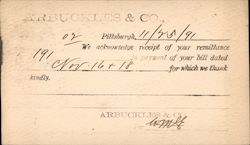 ARBUCKLES & CO.,
Pittsburgh, 11/25/91
We acknowledge receipt of your remittance
191 in payment of your bill dated
Nov. 16 + 18 for which we thank
kindly.
ARBUCKLES & CO.